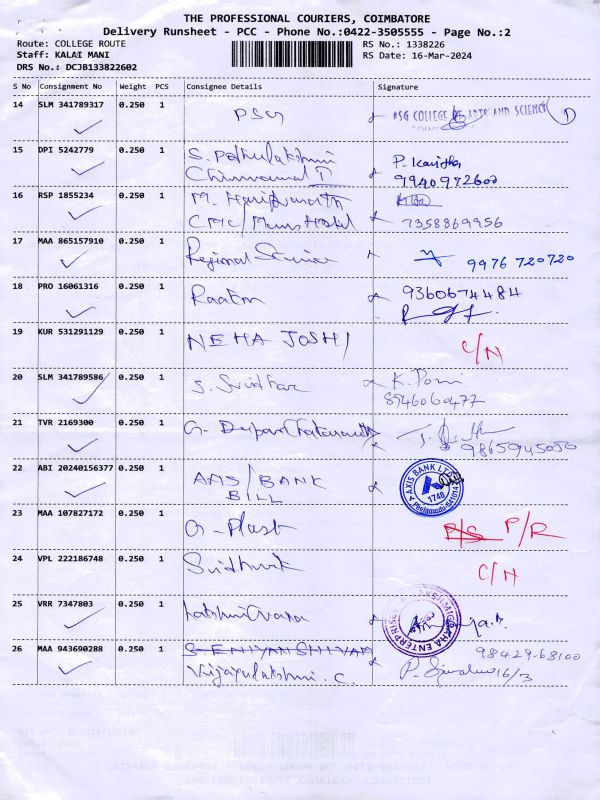 THE PROFESSIONAL COURIERS, COIMBATORE
Delivery Runsheet - PCC - Phone No.:0422-3505555 - Page No.:2
Route: COLLEGE ROUTE RS No.: 1338226
Staff: KALAI MANI RS Date: 16-Mar-2024
DRS No.: DCJB133822602
S No Consignment No Weight PCS Consignee Details Signature
14 SLM 341789317 0.250 1 PSG PSG COLLEGE OF ARTS AND SCIENCE
15 DPI 5242779 0.250 1 S. Pothulakshmi P. Kavitha
9940972600
16 RSP 1855234 0.250 1 M.
CMC/Mens Hostel 7358869956
17 MAA 865157910 0.250 1 Regional Science 9976 720720
18 PRO 16061316 0.250 1 9360674484
19 KUR 531291129 0.250 1 NEHA JOSHI C/N
20 SLM 341789586 0.250 1 S. Sridhar K. Poni
8546060477
21 TVR 2169300 0.250 1 G.
9865945050
22 ABI 20240156377 0.250 1 AXIS/BANK AXIS BANK LTD
BILL 1748
23 MAA 107827172 0.250 1 G-Plast P/R
24 VPL 222186748 0.250 1 C/N
25 VRR 7347803 0.250 1 ENTERPRISES
26 MAA 943690288 0.250 1 SENIYAN SHIVAM 98429-68100
Vijayalakshmi. C. 16/3